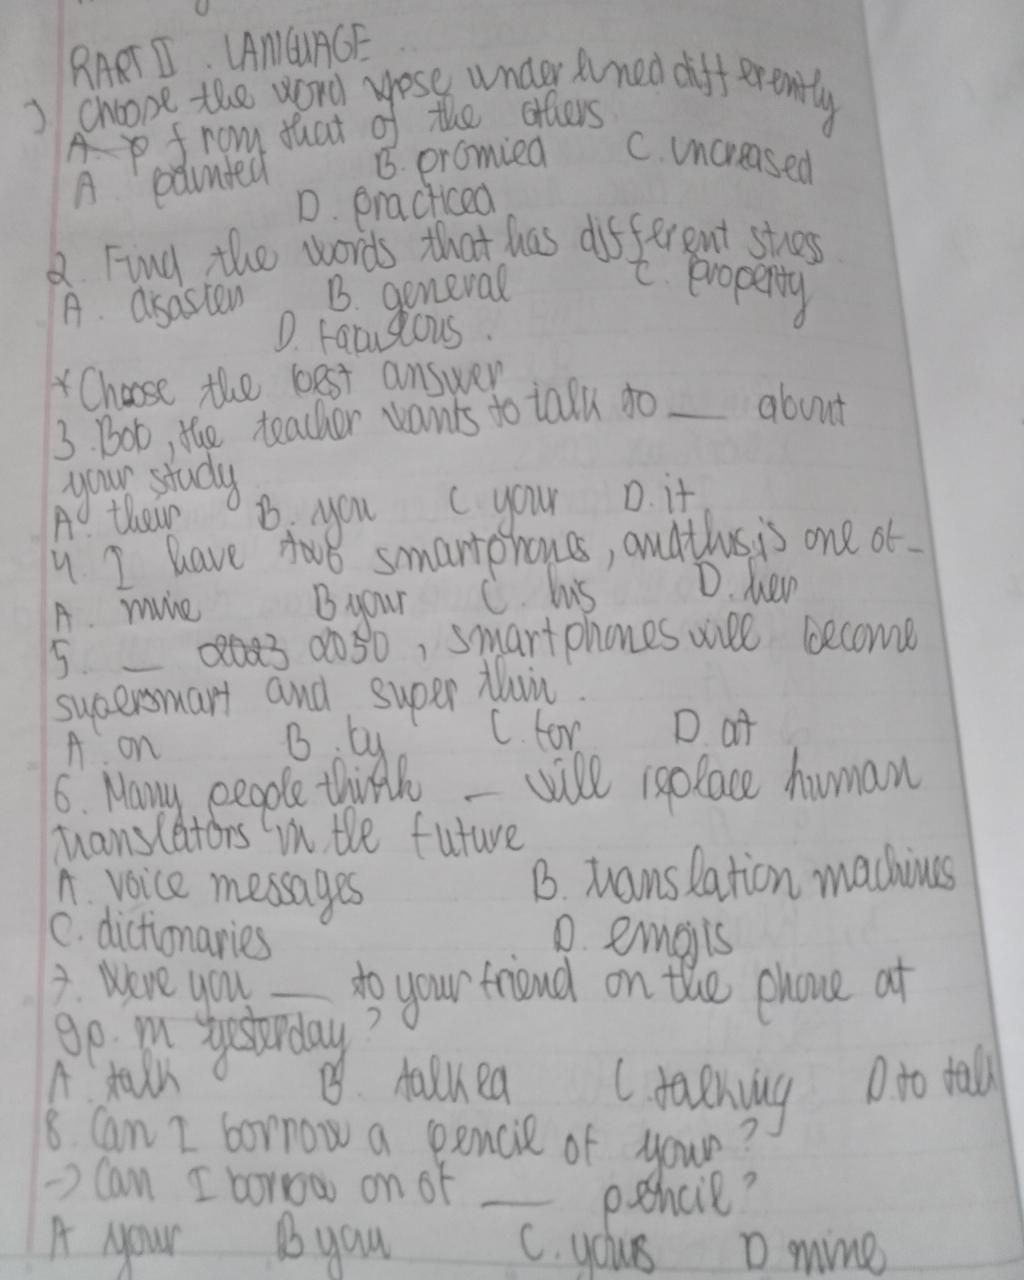 PART II. LANGUAGE
1 Choose the word whose underlined differently
A. from that of the others
A. painted B. promied C. increased
D. practiced
2. Find the words that has different stress
A. disaster B. general C. property
D. fabulous.
* Choose the best answer
3. Bob, the teacher wants to talk to ___ about
your study
A. their B. you C. your D. it
4. I have two smartphones, and this is one of _
A. mine B your C. his D. her
5. _ 2050, smartphones will become
supersmart and super thin.
A. on B. by C. for D. at
6. Many people think _ will replace human
translators in the future
A. voice messages B. translation machines
C. dictionaries D. emojis
7. Were you ___ to your friend on the phone at
9p.m yesterday?
A. talk B. talked C. talking D. to talk
8. Can I borrow a pencil of your?
-> Can I borrow on of ___ pencil?
A your B you C. yours D mine